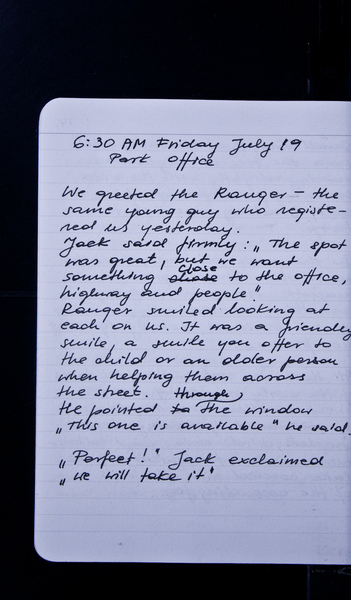 6:30 AM Friday July 19
Park Office
We greeted the Ranger – the
same young guy who registe-
red us yesterday.
Jack said firmly: „The spot
was great, but we want
something close to the office,
highway and people."
Ranger smiled looking at
each on us. It was a friendly
smile, a smile you offer to
the child or an older person
when helping them across
the street.
He pointed through the window
„This one is available" he said.
„Perfect!" Jack exclaimed
„we will take it"